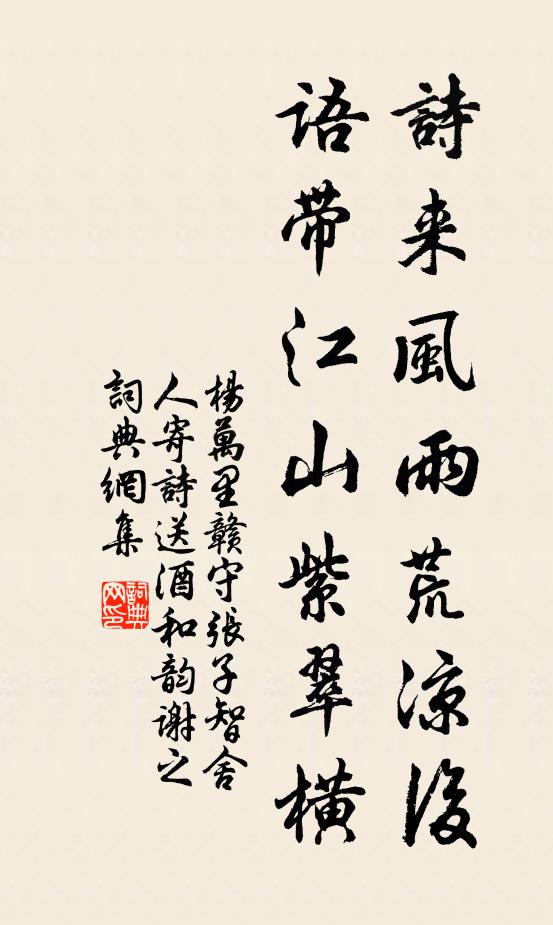 詩来風雨荒涼後
語帶江山紫翠橫
楊萬里贛守張子智舍
人寄詩送酒和韵謝之
詞典網集
詞典
网印